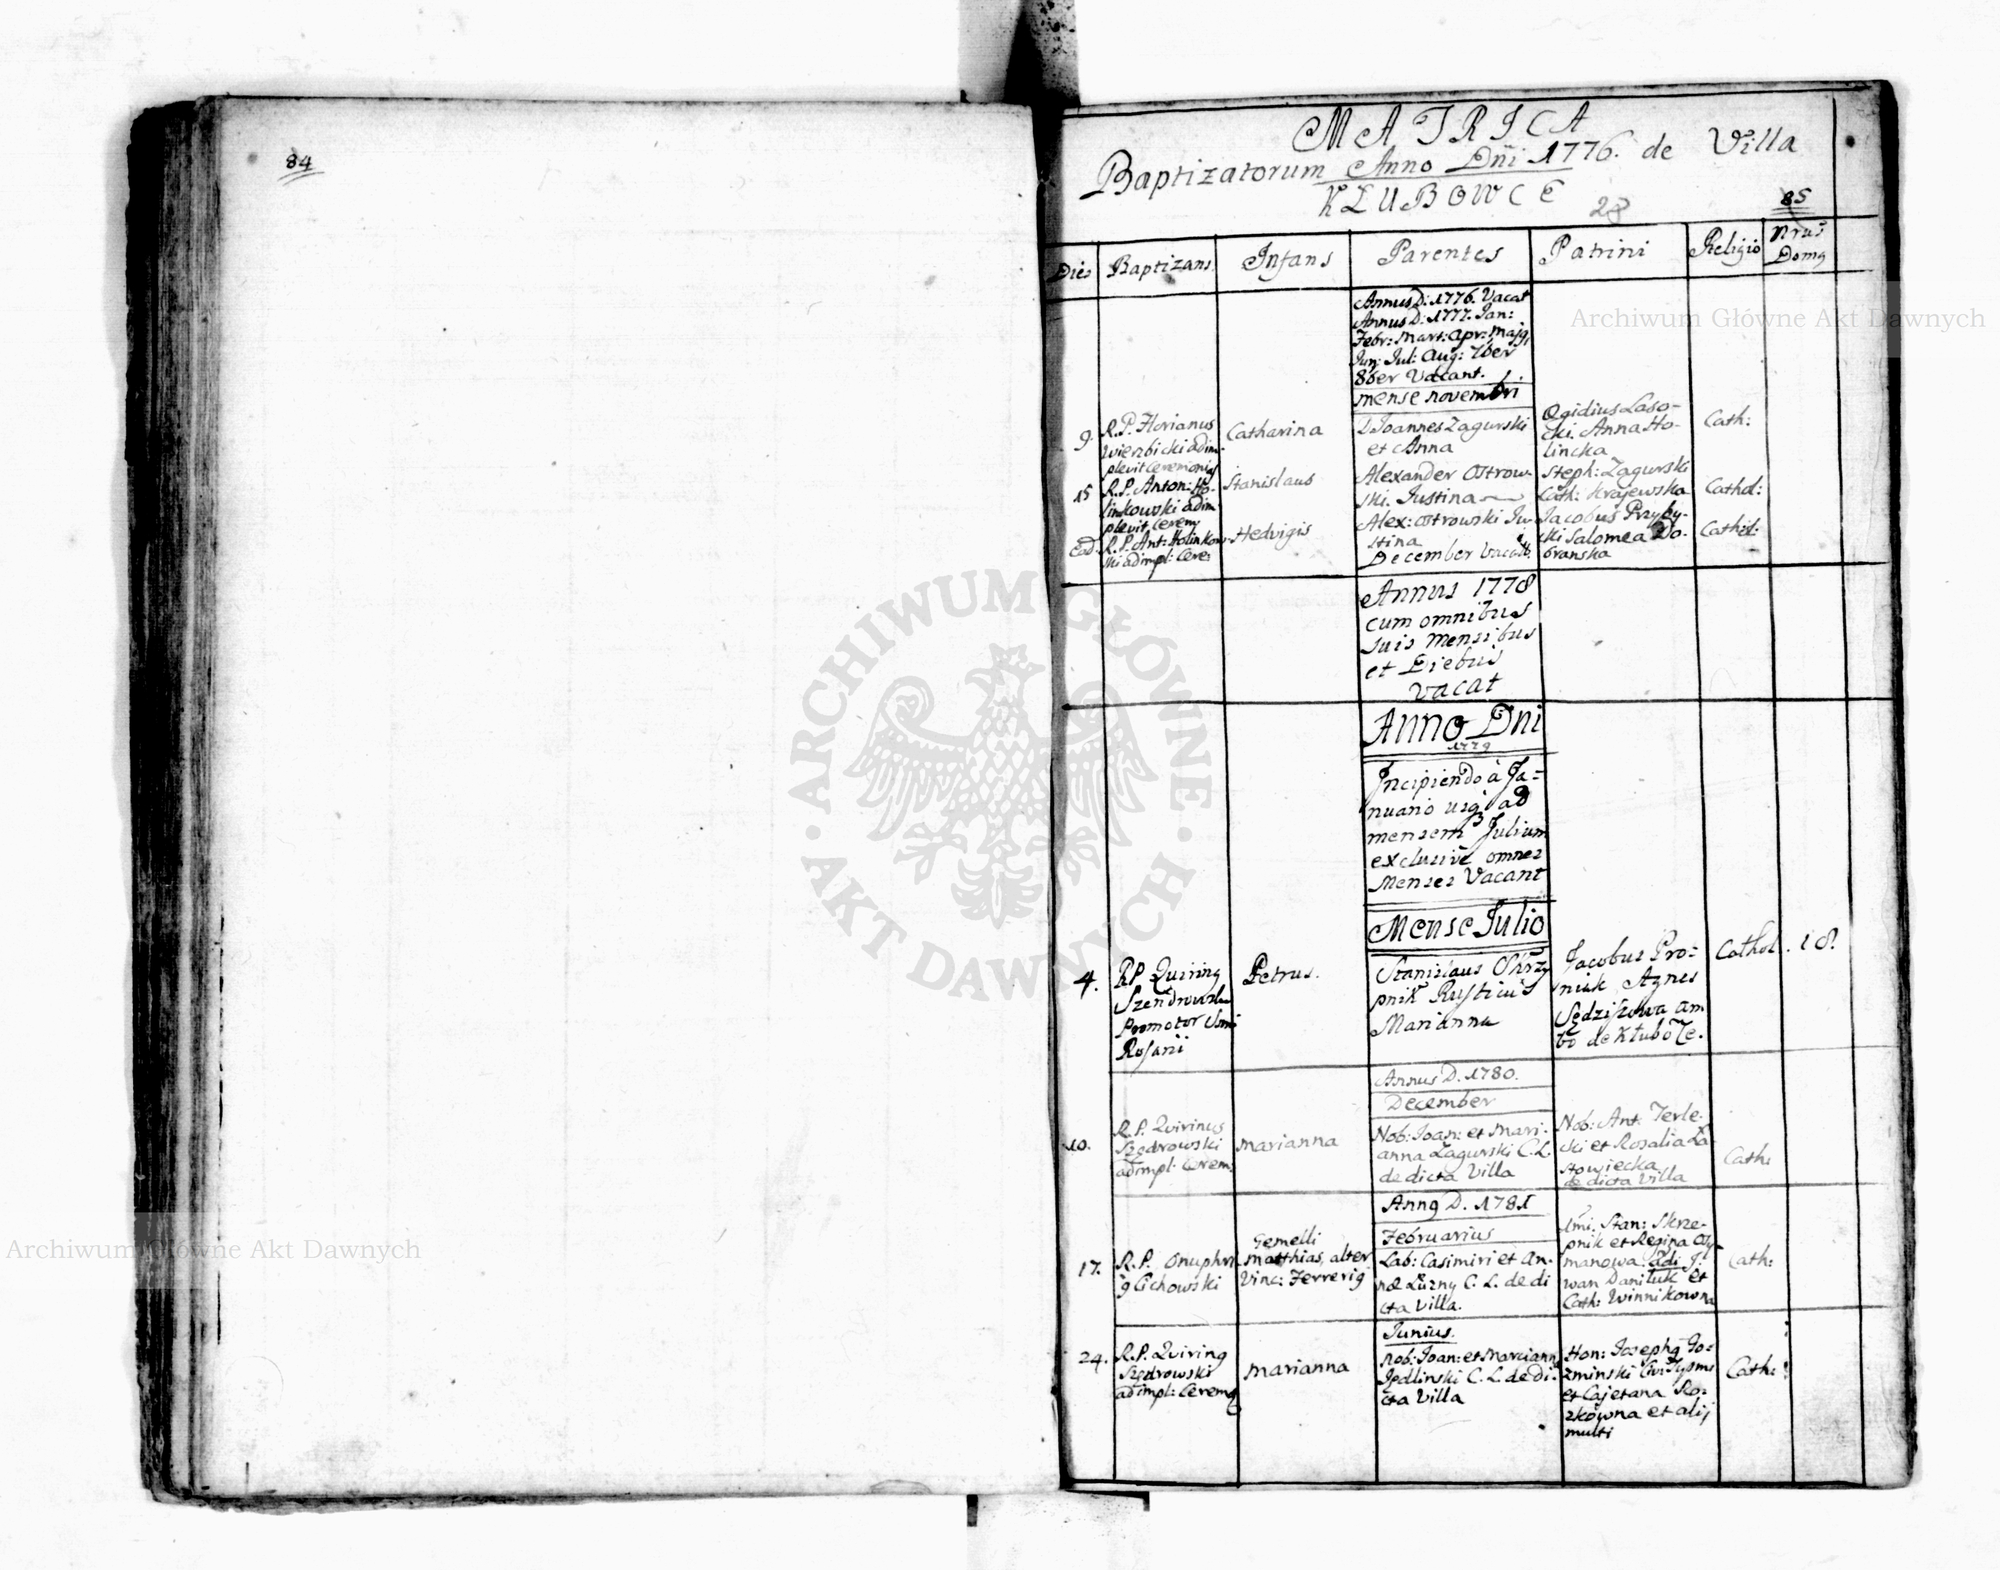 84
MATRICA
Baptizatorum Anno Dni 1776. de Villa
KŁUBOWCE
28
85
Dies
Baptizans
Infans
Parentes
Patrini
Religio
Nrus
Domg
Annus D: 1776. Vacat
Annus D: 1777. Jan:
Febr: Mart: Apr: Majg,
Jun: Jul: Aug: 7ber
8ber Vacant.
mense novembri
9.
R.P. Florianus
Wierzbicki adim-
plevit Ceremonias
Catharina
D Joannes Zagurski
et Anna
Ægidius Laso-
cki. Anna Ho-
lincka
Cath:
15
R.P. Anton: Ho-
linkowski adim
plevit Cerem
Stanislaus
Alexander Ostrow-
ski. Justina
Steph: Zagurski
Cath: Krajewska
Cathol:
Ead.
R.P. Ant: Holinkow-
ski adimpl: Cere:
Hedvigis
Alex: Ostrowski Ju-
stina
December Vacat
Jacobus Przyby-
cki Salomea Do-
branska
Cathol:
Annus 1778
cum omnibus
suis Mensibus
et Diebus
vacat
Anno Dni
1779
Incipiendo à Ja-
nuario usq ad
mensem Julium
exclusivè omnes
Menses Vacant
Mense Julio
4.
RP Quiring
Promotor
Rosarii
Petrus.
Stanislaus Skrzy
pnik Rusticus
Marianna
Jacobus Pro-
niuk Agnes
Sędziszowa am
bo de Kłubo
Cathol.
18.
Annus D. 1780.
December
10.
R.P. Quirinus
Szędrowski
adimpl: Cerem:
Marianna
Nob: Joan: et Mari-
anna Zagurski C.L.
de dicta Villa
Nob: Ant: Terle-
cki et Rosalia La-
towiecka
de dicta Villa
Cath:
Anng D. 1781
Februarius
17.
R.P. Onuphri
g Cichowski
Gemelli
Matthias, alter
Vinc: Ferrerig
Lab: Casimiri et An-
næ Luzny C. L. de di
cta Villa.
1mi. Stan: Skrze-
pnik et Regina
manowa. 2di J-
wan Daniluk et
Cath: Winnikowna
Cath:
Junius.
24.
R.P. Quiring
Szędrowski
adimpl: Ceremo
Marianna
Nob: Joan: et Mariann
Jedlinski C. L. de di-
cta Villa
Hon: Josephg Jo-
zminski
et Cajetana Ro-
zkowna et alij
multi
Cath:
Archiwum Główne Akt Dawnych
Archiwum Główne Akt Dawnych
ARCHIWUM GŁÓWNE
AKT DAWNYCH